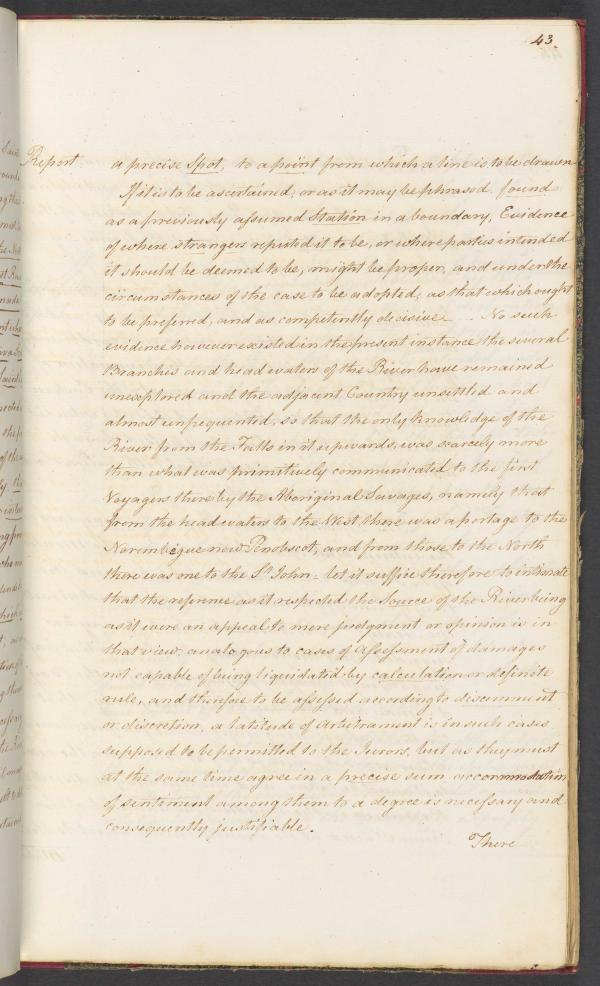 43.
Report
a precise Spot, to a point from which a line is to be drawn
If it is to be ascertained, or as it may be phrased, found
as a previously assumed Station in a boundary, Evidence
of where strangers reputed it to be, or where parties intended
it should be deemed to be, might be proper, and under the
circumstances of the case to be adopted, as that which ought
to be preferred, and as competently decisive. _ No such
evidence however existed in the present instance the several
Branches and head waters of the River have remained
unexplored and the adjacent Country unsettled and
almost unfrequented, so that the only knowledge of the
River from the Falls in it upwards, was scarcely more
than what was primitively communicated to the first
Voyagers there by the Aboriginal Savages, namely that
from the head waters to the West there was a portage to the
Norembegue now Penobscot, and from those to the North
there was one to the St John - let it suffice therefore to intimate
that the reference as it respected the Source of the River being
as it were an appeal to mere judgment or opinion is in
that view, analogous to cases of Assessment of damages
not capable of being liquidated by calculation or definite
rule, and therefore to be assessed according to discernment
or discretion, a latitude of Arbitrament is in such cases
supposed to be permitted to the Jurors, but as they must
at the same time agree in a precise sum accommodation
of sentiment among them to a degree is necessary and
consequently justifiable.
There